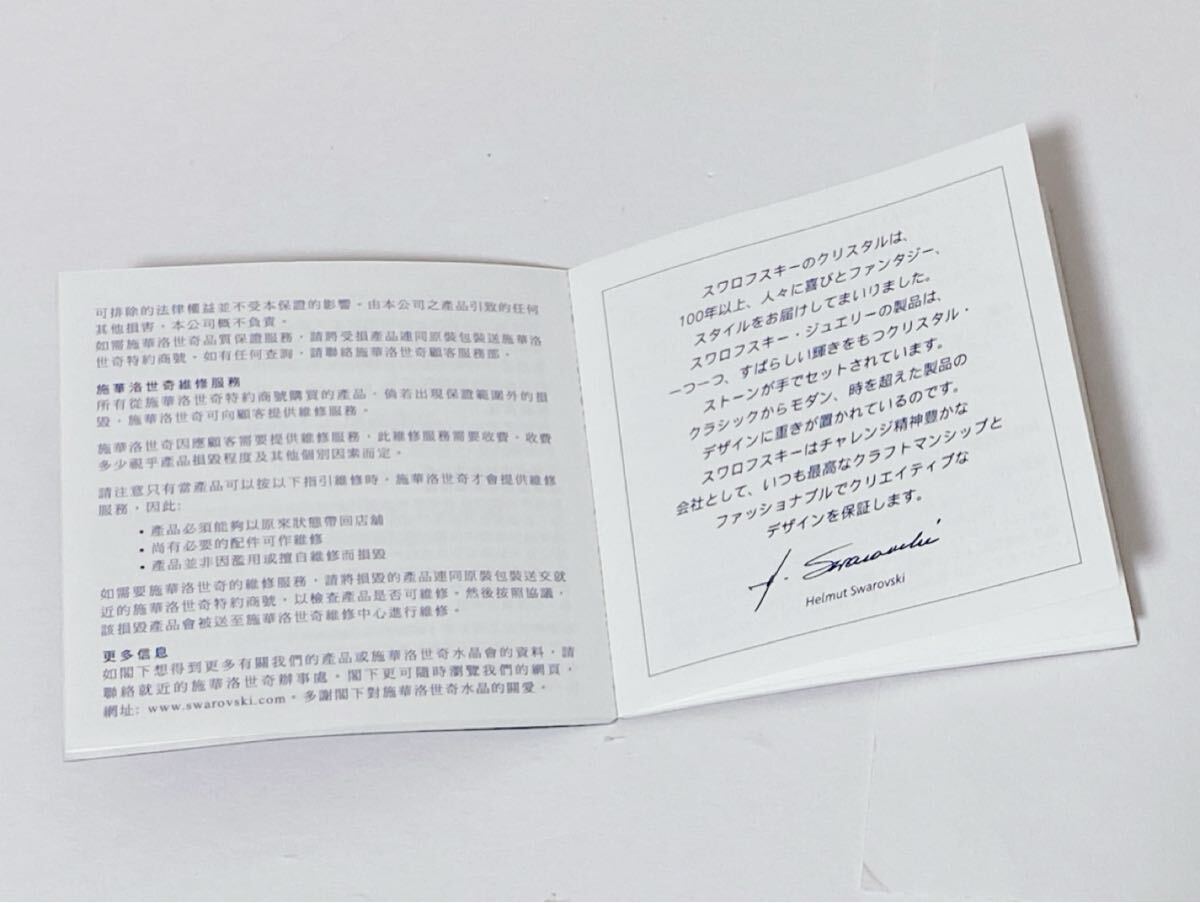 可排除的法律權益並不受本保證的影響。由本公司之產品引致的任何
其他損害，本公司概不負責。
如需施華洛世奇品質保證服務，請將受損產品連同原裝包裝送施華洛
世奇特約商號。如有任何查詢，請聯絡施華洛世奇顧客服務部。
施華洛世奇維修服務
所有從施華洛世奇特約商號購買的產品，倘若出現保證範圍外的損
毀，施華洛世奇可向顧客提供維修服務。
施華洛世奇因應顧客需要提供維修服務，此維修服務需要收費，收費
多少視乎產品損毀程度及其他個別因素而定。
請注意只有當產品可以按以下指引維修時，施華洛世奇才會提供維修
服務，因此:
• 產品必須能夠以原來狀態帶回店舖
• 尚有必要的配件可作維修
• 產品並非因濫用或擅自維修而損毀
如需要施華洛世奇的維修服務，請將損毀的產品連同原裝包裝送交就
近的施華洛世奇特約商號，以檢查產品是否可維修。然後按照協議，
該損毀產品會被送至施華洛世奇維修中心進行維修。
更多信息
如閣下想得到更多有關我們的產品或施華洛世奇水晶會的資料，請
聯絡就近的施華洛世奇辦事處。閣下更可隨時瀏覽我們的網頁，
網址: www.swarovski.com。多謝閣下對施華洛世奇水晶的關愛。
スワロフスキーのクリスタルは、
100年以上、人々に喜びとファンタジー、
スタイルをお届けしてまいりました。
スワロフスキー・ジュエリーの製品は、
一つ一つ、すばらしい輝きをもつクリスタル・
ストーンが手でセットされています。
クラシックからモダン、時を超えた製品の
デザインに重きが置かれているのです。
スワロフスキーはチャレンジ精神豊かな
会社として、いつも最高なクラフトマンシップと
ファッショナブルでクリエイティブな
デザインを保証します。
H. Swarovski
Helmut Swarovski